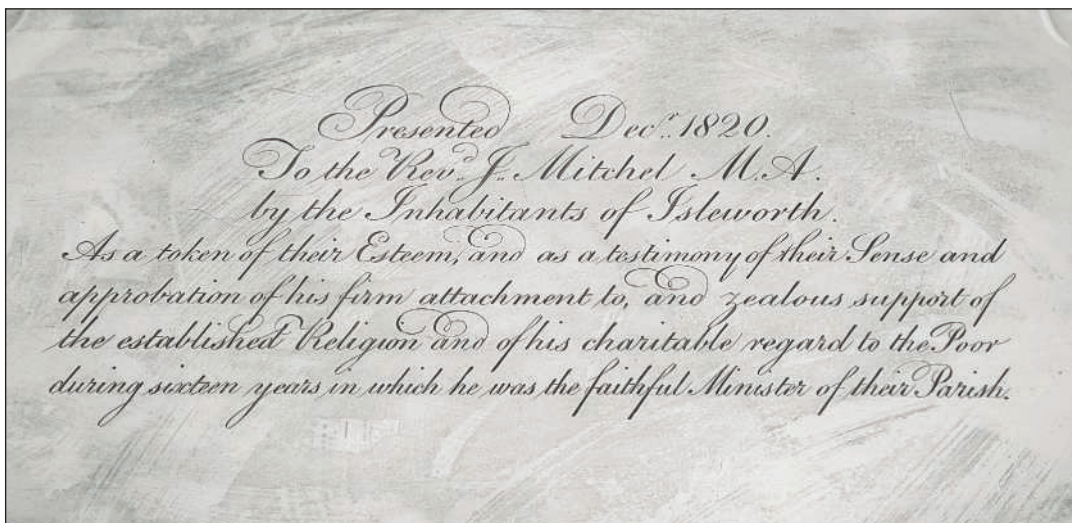 Presented Decr. 1820.
To the Revd. J. Mitchel M.A.
by the Inhabitants of Isleworth.
As a token of their Esteem, and as a testimony of their Sense and
approbation of his firm attachment to, and zealous support of
the established Religion and of his charitable regard to the Poor
during sixteen years in which he was the faithful Minister of their Parish.